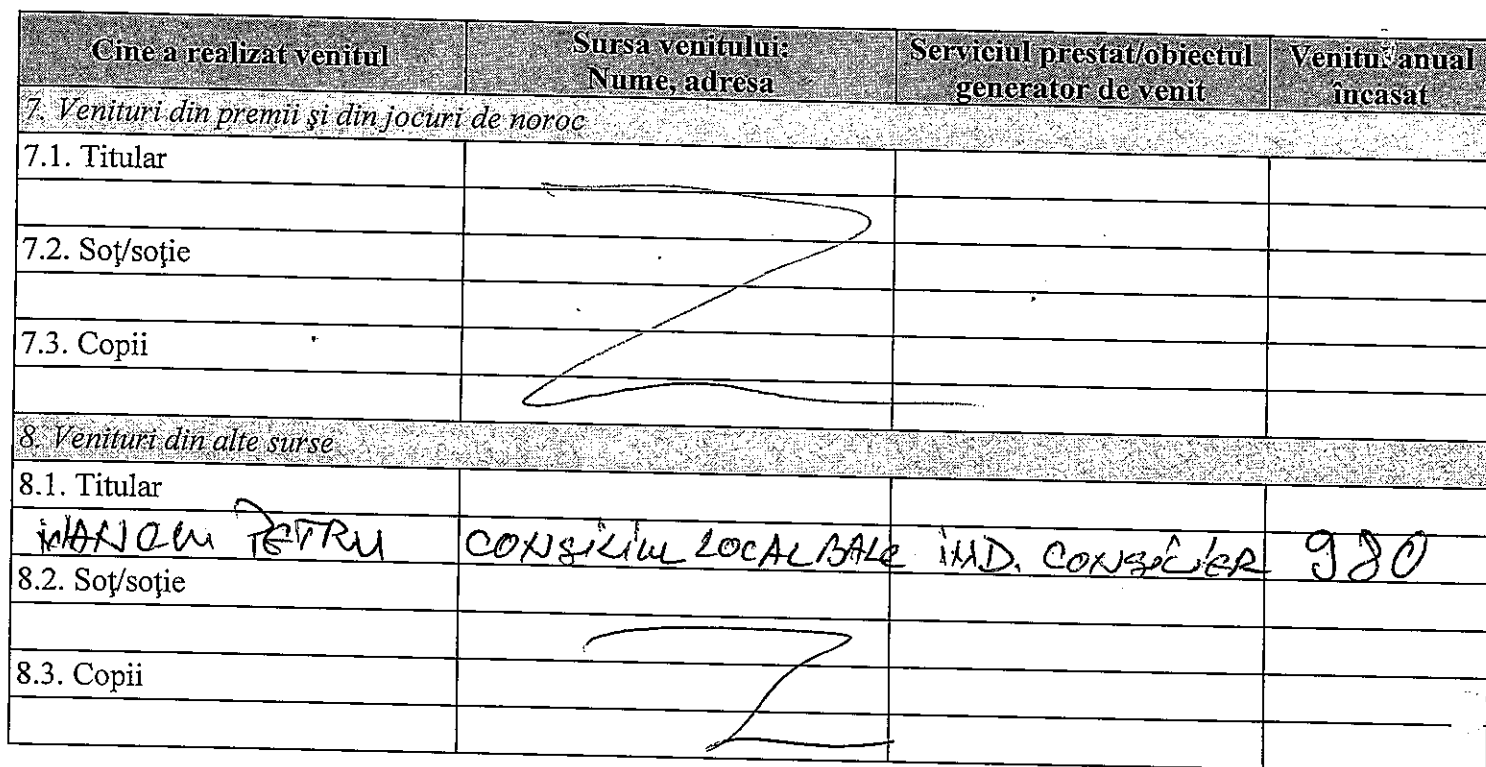 Cine a realizat venitul
Sursa venitului:
Nume, adresa
Serviciul prestat/obiectul
generator de venit
Venitul anual
încasat
7. Venituri din premii şi din jocuri de noroc
7.1. Titular
7.2. Soţ/soţie
7.3. Copii
8. Venituri din alte surse
8.1. Titular
PETRU CONSILIUL LOCAL BALC IND. CONSILIER 980
8.2. Soţ/soţie
8.3. Copii